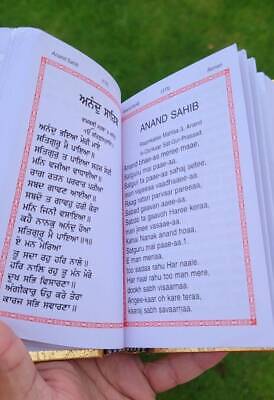 Anand Sahib
ਅਨੰਦੁ ਸਾਹਿਬ
ਰਾਮਕਲੀ ਮਹਲਾ ੩ ਅਨੰਦੁ
ੴ ਸਤਿਗੁਰ ਪ੍ਰਸਾਦਿ॥
ਅਨੰਦੁ ਭਇਆ ਮੇਰੀ ਮਾਏ
ਸਤਿਗੁਰੂ ਮੈ ਪਾਇਆ॥
ਸਤਿਗੁਰੁ ਤ ਪਾਇਆ ਸਹਜ ਸੇਤੀ
ਮਨਿ ਵਜੀਆ ਵਾਧਾਈਆ॥
ਰਾਗ ਰਤਨ ਪਰਵਾਰ ਪਰੀਆ
ਸਬਦ ਗਾਵਣ ਆਈਆ॥
ਸਬਦੋ ਤ ਗਾਵਹੁ ਹਰੀ ਕੇਰਾ
ਮਨਿ ਜਿਨੀ ਵਸਾਇਆ॥
ਕਹੈ ਨਾਨਕੁ ਅਨੰਦੁ ਹੋਆ
ਸਤਿਗੁਰੂ ਮੈ ਪਾਇਆ॥੧॥
ਏ ਮਨ ਮੇਰਿਆ
ਤੂ ਸਦਾ ਰਹੁ ਹਰਿ ਨਾਲੇ॥
ਹਰਿ ਨਾਲਿ ਰਹੁ ਤੂ ਮੰਨ ਮੇਰੇ
ਦੂਖ ਸਭਿ ਵਿਸਾਰਣਾ॥
ਅੰਗੀਕਾਰੁ ਓਹੁ ਕਰੇ ਤੇਰਾ
ਕਾਰਜ ਸਭਿ ਸਵਾਰਣਾ॥
Roman
ANAND SAHIB
Raamkalee Mahlaa 3, Anand
Ik-Oankaar Sat-Gur-Prasaad.
Anand bhae-aa meree maae,
Satguru mai paae-aa.
Satgur ta paae-aa sahaj setee,
man vajeeaa vaadhaaee-aa.
Raag ratan parivaar pareeaa,
Sabad gaavan aaee-aa.
Sabdo ta gaavoh Haree keraa,
man jinee vasaae-aa.
Kahai Nanak anand hoaa,
Satguru mai paae-aa.1.
E man meraa,
too sadaa rahu Har naale.
Har naal rahu too man mere,
dookh sabh visaarnaa.
Angee-kaar oh kare teraa,
kaaraj sabh savaarnaa.